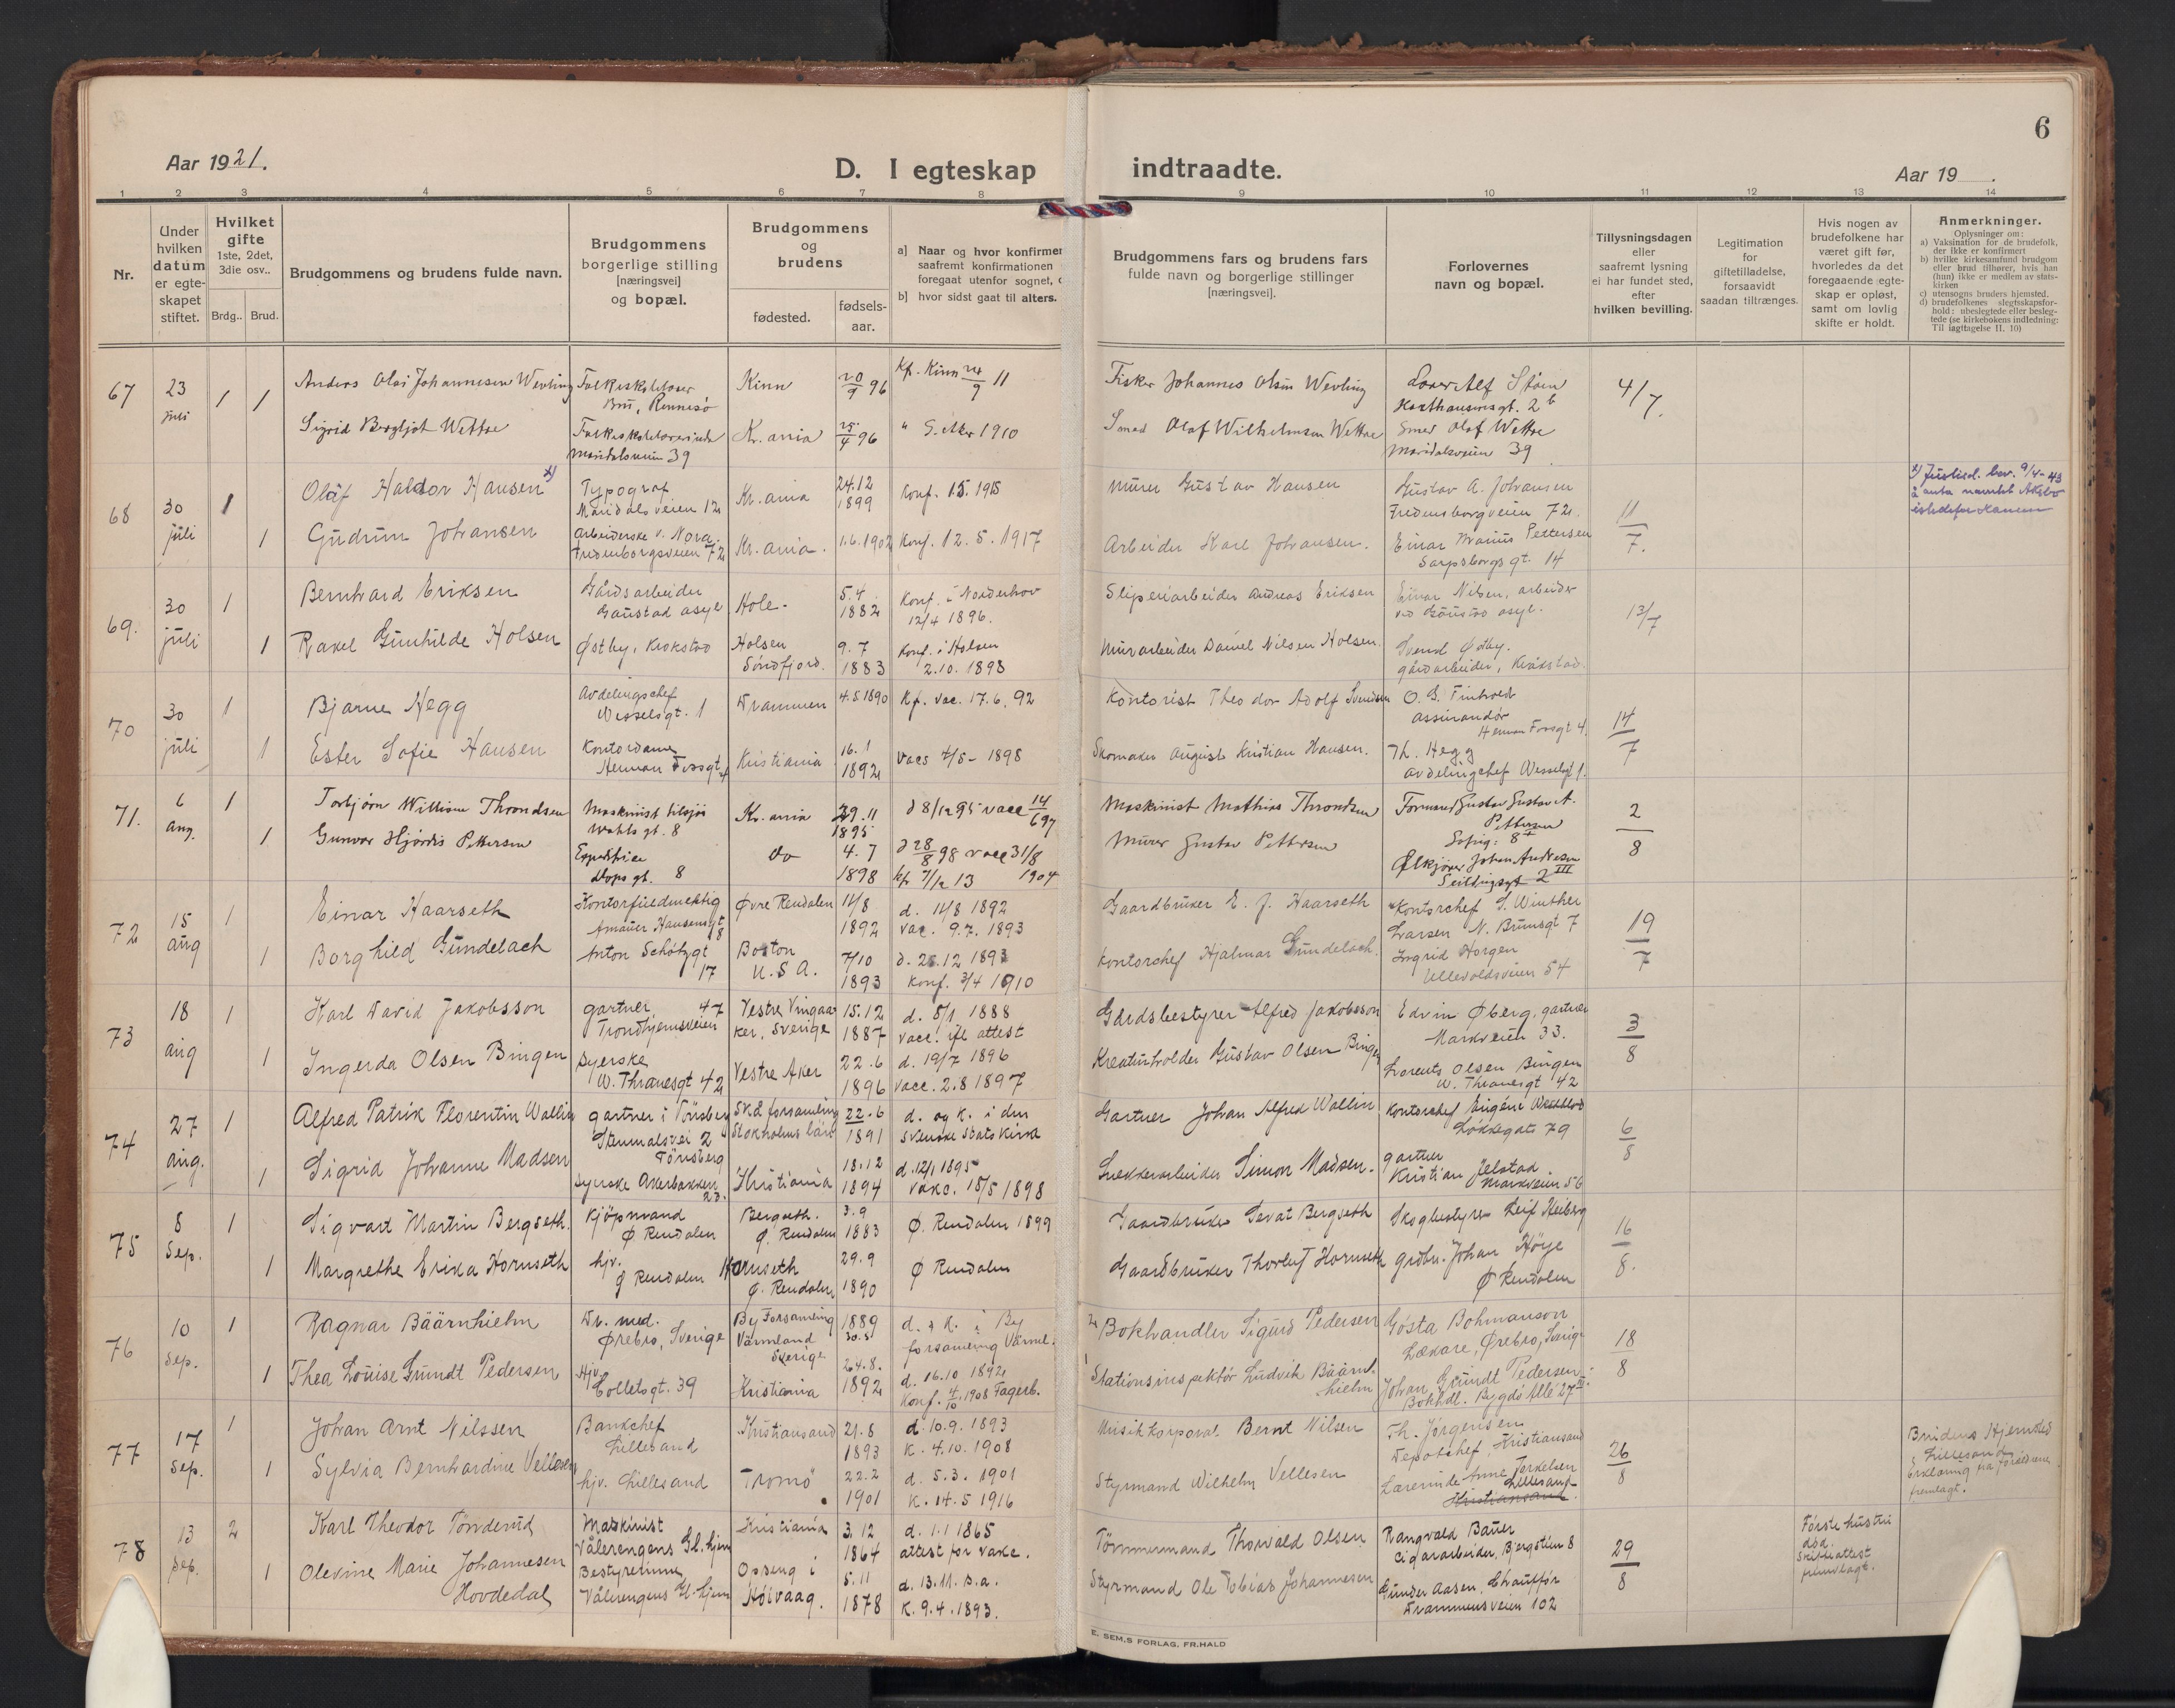 6
Aar 1921.
D. I egteskap indtraadte.
Aar 19 .
1 2 3 4 5 6 7 8 9 10 11 12 13 14
Nr.
Under hvilken datum er egte-skapet stiftet.
Hvilket gifte 1ste, 2det, 3die osv..
Brdg.. Brud.
Brudgommens og brudens fulde navn.
Brudgommens borgerlige stilling [næringsvei] og bopæl.
Brudgommens og brudens
fødested.
fødsels-aar.
a] Naar og hvor konfirmer
saafremt konfirmationen
foregaat utenfor sognet,
b] hvor sidst gaat til alters.
Brudgommens fars og brudens fars
fulde navn og borgerlige stillinger
[næringsvei].
Forlovernes
navn og bopæl.
Tillysningsdagen
eller
saafremt lysning
ei har fundet sted,
efter
hvilken bevilling.
Legitimation
for
giftetilladelse,
forsaavidt
saadan tiltrænges.
Hvis nogen av
brudefolkene har
været gift før,
hvorledes da det
foregaaende egte-
skap er opløst,
samt om lovlig
skifte er holdt.
Anmerkninger.
Oplysninger om:
a) Vaksination for de brudefolk,
der ikke er konfirmert
b) hvilke kirkesamfund brudgom
eller brud tilhører, hvis han
(hun) ikke er medlem av stats-
kirken
c) utensogns bruders hjemsted.
d) brudefolkenes slegtsskapsfor-
hold: ubeslegtede eller besleg-
tede (se kirkebokens indledning:
Til iagttagelse II. 10)
67 23 juli 1 1
Anders Olai Johannesen Wevling
Kinn 20/9 96
Kf. Kinn 24/9 11
Fisker Johannes Olsen Wevling
Karthausensgt. 2 b
4/7.
Sigrid Bergljot Wettre
Maridalsveien 39
Kr.ania 25/4 96
" G. Aker 1910
Smed Olaf Wilhelmsen Wettre
Smed Olaf Wettre
Maridalsveien 39
68 30 juli 1
Olaf Haldor Hansen x)
Typograf
Maridalsveien 12
Kr.ania 24.12 1899
Konf. 1915
Murer Gustav Hansen
Gustav A. Johansen
Fredensborgveien 72.
11/7.
x) Justisd. bev. 9/4-43
å anta navnet
istedefor Hansen
1 Gudrun Johansen
Arbeiderske v. Nora.
Fredenborgsveien 72
Kr.ania. 1.6.1902
Konf. 12.5.1917
Arbeider Karl Johansen.
Einar Marius Pettersen
Sarpsborgs gt. 14
69. 30 juli 1
Bernhard Eriksen
Gårdsarbeider
Gaustad asyl
Hole. 5.4. 1882
Konf. i Norderhov
12/4 1896.
Sliperiarbeider Andreas Eriksen
Einar Nilsen, arbeider
ved Gaustad asyl.
13/7
1 Rakel Gunhilde Holsen
Østby, Krokstad
Holsen
Søndfjord.
9.7 1883
Konf. i Holsen
2.10. 1898
Murarbeider Daniel Nilsen Holsen.
Svend Østby.
gårdarbeider, Kråkstad.
70 30 juli 1
Bjarne Hegg
Avdelingschef
Wesselsgt. 1
Drammen 4.5.1890
Kf. vac. 17.6.92
Kontorist Theodor Adolf Svendsen
assurandør
Herman Fossgt 4.
14/7
1 Ester Sofie Hansen
Kontordame
Herman Fossgt 4
Kristiania 16.1 1892
Skomaker August Kristian Hansen.
Th. Hegg
avdelingchef Wesselsgt 1.
71. 6 aug. 1
Torbjørn William Throndsen
Maskinist tilsjøs
Wahls gt. 8
Kr.ania 29.11 1895
d 8/12 95 vacc 14/6 97
Maskinist Mathias Throndsen
Formand Gustav Gustav A.
Pettersen
2/8
1 Gunvor Hjørdis Pettersen
do 4.7 1898
d 28/8 98 vacc 31/8 1904
kf 7/12 13
Murer Gustav Pettersen
Ølkjører Johan Andresen
72 15 aug 1
Einar Haarseth
Kontorfuldmektig
Amauer Hansensgt 8
Øvre Rendalen 11/8 1892
d. 11/8 1892
vac. 9.7. 1893
Gaardbruker E. J. Haarseth
Kontorchef S. Winther
Larsen N. Brunsgt 7
19/7
1 Borghild Gundelach
Anton Schøtzgt 17
Boston
U.S.A.
7/10 1893
konf. 3/4 1910
Kontorchef Hjalmar Gundelach.
Ingrid Horgen
Ullevoldsveien 54
73 18 aug 1
Karl David Jakobsson
gartner
Trondhjemsveien 47
Vestre Vingaa-
ker, Sverige
15.12 1887
d. 8/1 1888
vacc. ifl attest
Gårdsbestyrer Alfred Jakobsson
Edvin Øberg, gartner
Markveien 33.
3/8
1 Ingerda Olsen Bingen
Syerske
W. Thranesgt 42
Vestre Aker 22.6 1896
d. 19/7 1896
vacc. 2.8 1897
Kreaturholder Gustav Olsen Bingen
Lorents Olsen Bingen
W. Thranesgt 42
74 27 aug. 1
Alfred Patrik Florentin Wallin
gartner i Tønsberg
Tønsberg
22.6 1891
d. og k. i den
svenske statskirke
Gartner Johan Alfred Wallin
Kontorchef Eugéne
Løkkegata 79
6/8
1 Sigrid Johanne Madsen
Syerske Akersbakken 23.
Kristiania 18.12 1894
d. 12/1 1895
vakc. 18/5 1898
Simon Madsen.
gartner
Kristian Jelstad
Markveien 56
75 8 Sep. 1
Sigvart Martin Bergseth.
Kjøpmand
Ø. Rendalen
Bergseth.
Ø. Rendalen
3.9 1883
Ø. Rendalen 1899
Gaardbruker Sevat Bergseth
Skogbestyrer Leif Heiberg
16/8.
1 Margrethe Erika Hornseth
hjv.
Ø Rendalen
Hornseth
Ø. Rendalen
29.9 1890
Ø Rendalen
Gaardbruker Thorleif Hornseth
grdbr. Johan Høye
Ø Rendalen
76 10 Sep. 1
Ragnar Bäärnhielm
Dr. med.
Ørebro, Sverige
By Forsamling
Värmland
Sverige
1889 30.5
d. & k. i By
forsamling Värml.
2 Bokhandler Sigurd Pedersen
Gösta Bohmanson
Läkare, Ørebro, Sverige
18/8
1 Thea Louise Grundt Pedersen
Hjv.
Colletsgt. 39
Kristiania 24.8. 1892
d. 16.10 1892
Konf. 4/10 1908 Fagerb.
1 Stationsinspektör Ludvik Bäärn-
hielm
Johan Grundt Pedersen
Bokhdl. Bygdø Alle 27
77 17 Sep. 1
Johan Arnt Nilssen
Bankchef
Lillesand
Kristiansand 21.8 1893
d. 10.9. 1893
K. 4.10. 1908
Musikkorporal Bernt Nilsen
Th. Jørgensen
Depotchef, Kristiansand
26/8
Brudens Hjemsted
Lillesand
Erklæring fra forældrene
fremlagt.
1 Sylvia Bernhardine Vellesen
hjv. Lillesand
Tromø 22.2 1901
d. 5.3. 1901
K. 14.5 1916
Styrmand Wilhelm Vellesen
Lærerinde Anne Terkelsen
Lillesand
Kristiansand.
78 13 Sep. 2
Karl Theodor Tønderud
Maskinist
Vålerengens Gl.hjem
Kristiania 3.12 1864
d. 1.1 1865
attest for vakc.
Tømmermand Thorvald Olsen
Rangvald Bauer
cigararbeider, Bjergstien 8
29/8
Første hustru
død.
Skifteattest
fremlagt.
1 Olevine Marie Johannesen
Hovdedal
Bestyrerinne
Vålerengens Gl.hjem
Opseng i
Høivaag.
5.11 1878
d. 13.11. s.a.
K. 9.4.1893.
Styrmand Ole Tobias Johannesen
Gunder Aasen, Chauffør
Drammensveien 102
E. SEM.S FORLAG, FR.HALD